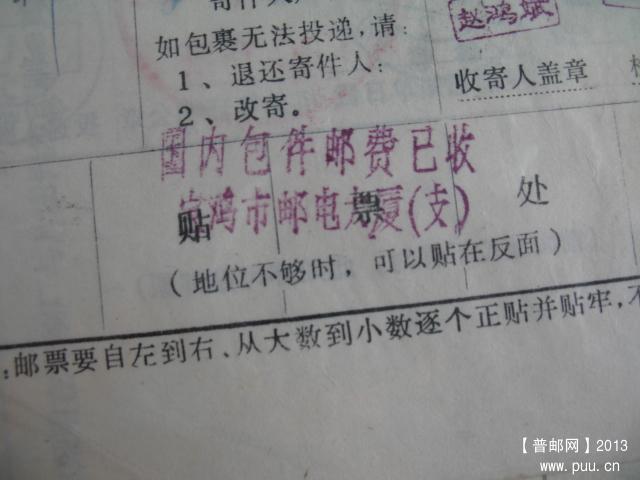 寄件人
如包裹无法投递，请：
1、退还寄件人：
2、改寄。
赵鸿斌
收寄人盖章
国内包件邮费已收
鸿市邮电大厦(支)
贴 票 处
（地位不够时，可以贴在反面）
：邮票要自左到右、从大数到小数逐个正贴并贴牢，
【普邮网】2013
www.puu.cn